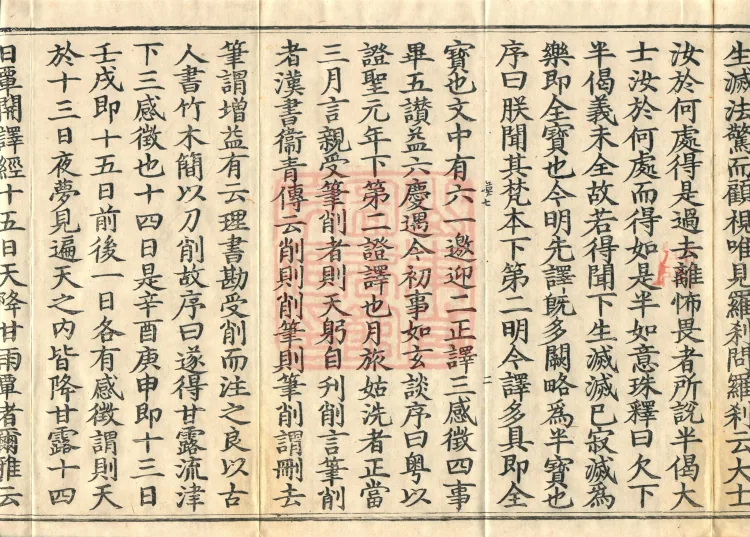 生滅法驚而顧視唯見羅刹問羅刹云大士
汝於何處得是過去離怖畏者所說半偈大
士汝於何處而得如是半如意珠釋曰欠下
半偈義未全故若得聞下生滅滅已寂滅為
樂即全寶也今明先譯既多闕略為半寶也
序曰朕聞其梵本下第二明今譯多具即全
寶也文中有六一邀迎二正譯三感徵四事
畢五讚益六慶遇今初事如玄談序曰粵以
證聖元年下第二證譯也月旅姑洗者正當
三月言親受筆削者則天躬自刋削言筆削
者漢書衞青傳云削則削筆則筆削謂刪去
筆謂增益有云理書勘受削而注之良以古
人書竹木簡以刀削故序曰遂得甘露流津
下三感徵也十四日是辛酉庚申即十三日
壬戌即十五日前後一日各有感徵謂則天
於十三日夜夢見遍天之內皆降甘露十四
日單開譯經十五日天降甘雨單者爾雅云